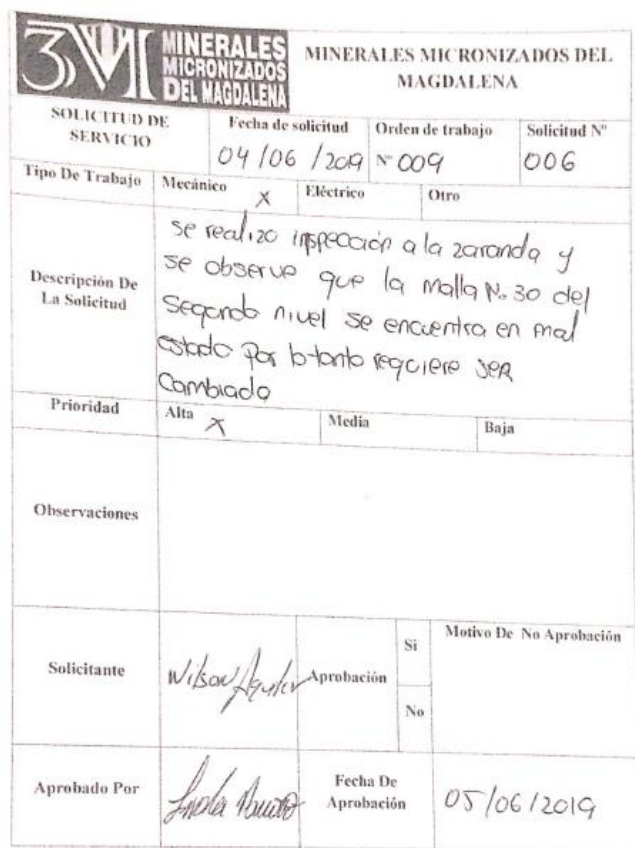 3M MINERALES
MICRONIZADOS
DEL MAGDALENA
MINERALES MICRONIZADOS DEL
MAGDALENA
SOLICITUD DE
SERVICIO
Fecha de solicitud
04/06/2019
Orden de trabajo
N° 009
Solicitud N°
006
Tipo De Trabajo
Mecánico X
Eléctrico
Otro
Descripción De
La Solicitud
se realizo inspección a la zaranda y
se observe que la malla No 30 del
Segundo nivel se encuentra en mal
estado Por lo tanto requiere SER
Cambiado
Prioridad
Alta X
Media
Baja
Observaciones
Solicitante
Wilson Aguilar
Aprobación
Si
No
Motivo De No Aprobación
Aprobado Por
Fecha De
Aprobación
05/06/2019